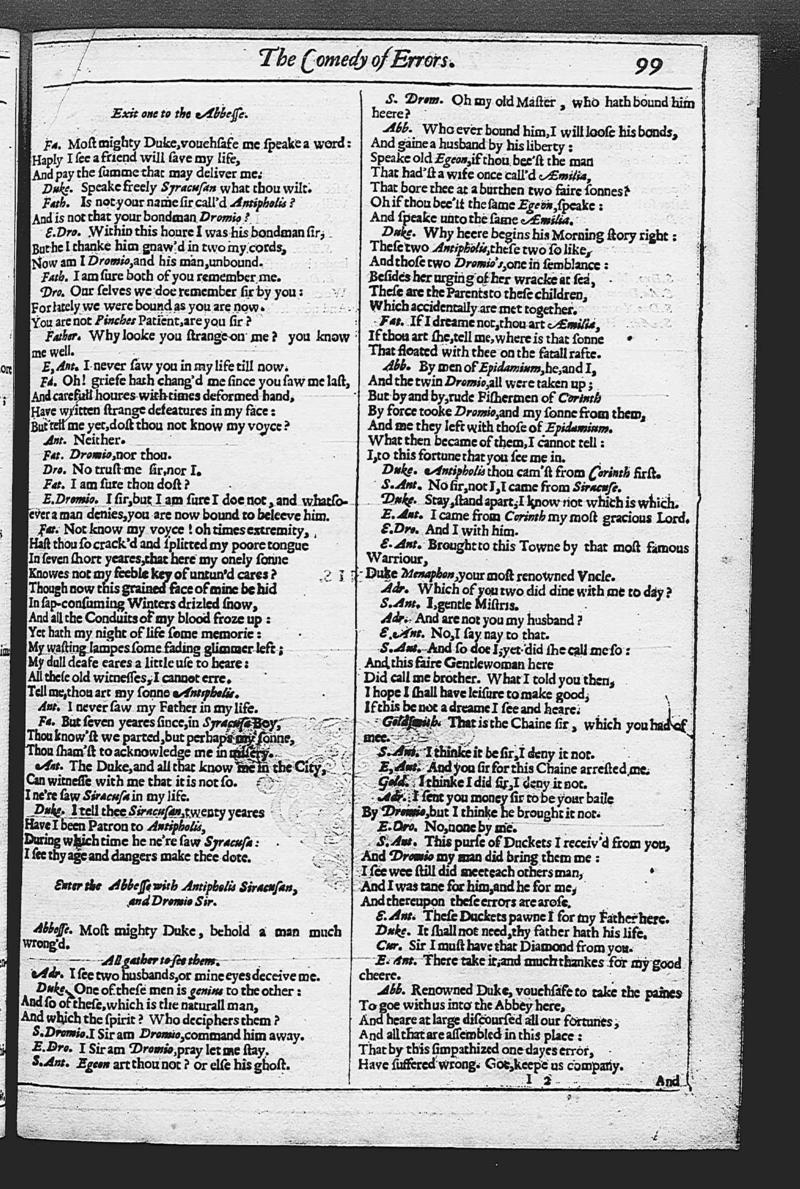 The Comedy of Errors. 99
Exit one to the Abbesse.
Fa. Most mighty Duke, vouchsafe me speake a word:
Haply I see a friend will save my life,
And pay the summe that may deliver me.
Duke. Speake freely Syracusan what thou wilt.
Fath. Is not your name sir call'd Antipholis?
And is not that your bondman Dromio?
E.Dro. Within this houre I was his bondman sir,
But he I thanke him gnaw'd in two my cords,
Now am I Dromio, and his man, unbound.
Fath. I am sure both of you remember me.
Dro. Our selves we doe remember sir by you:
For lately we were bound as you are now.
You are not Pinches Patient, are you sir?
Father. Why looke you strange on me? you know
me well.
E, Ant. I never saw you in my life till now.
Fa. Oh! griefe hath chang'd me since you saw me last,
And carefull houres with times deformed hand,
Have written strange defeatures in my face:
But tell me yet, dost thou not know my voyce?
Ant. Neither.
Fat. Dromio, nor thou.
Dro. No trust me sir, nor I.
Fat. I am sure thou dost?
E.Dromio. I sir, but I am sure I doe not, and whatso-
ever a man denies, you are now bound to beleeve him.
Fat. Not know my voyce! oh times extremity,
Hast thou so crack'd and splitted my poore tongue
In seven short yeares, that here my onely sonne
Knowes not my feeble key of untun'd cares?
Though now this grained face of mine be hid
In sap-consuming Winters drizled snow,
And all the Conduits of my blood froze up:
Yet hath my night of life some memorie:
My wasting lampes some fading glimmer left;
My dull deafe eares a little use to heare:
All these old witnesses, I cannot erre.
Tell me, thou art my sonne Antipholis.
Ant. I never saw my Father in my life.
Fa. But seven yeares since, in Syracusa Boy,
Thou know'st we parted, but perhaps my sonne,
Thou sham'st to acknowledge me in misery.
Ant. The Duke, and all that know me in the City,
Can witnesse with me that it is not so.
I ne're saw Siracusa in my life.
Duke. I tell thee Siracusan, twenty yeares
Have I been Patron to Antipholis,
During which time he ne're saw Syracusa:
I see thy age and dangers make thee dote.
Enter the Abbesse with Antipholis Siracusan,
and Dromio Sir.
Abbesse. Most mighty Duke, behold a man much
wrong'd.
All gather to see them.
Adr. I see two husbands, or mine eyes deceive me.
Duke. One of these men is genius to the other:
And so of these, which is the naturall man,
And which the spirit? Who deciphers them?
S.Dromio. I Sir am Dromio, command him away.
E. Dro. I Sir am Dromio, pray let me stay.
S. Ant. Egeon art thou not? or else his ghost.
S. Drom. Oh my old Master, who hath bound him
heere?
Abb. Who ever bound him, I will loose his bonds,
And gaine a husband by his liberty:
Speake old Egeon, if thou bee'st the man
That had'st a wife once call'd Æmilia,
That bore thee at a burthen two faire sonnes?
Oh if thou bee'st the same Egeon, speake:
And speake unto the same Æmilia.
Duke. Why heere begins his Morning story right:
These two Antipholis, these two so like,
And those two Dromio's, one in semblance:
Besides her urging of her wracke at sea,
These are the Parents to these children,
Which accidentally are met together.
Fat. If I dreame not, thou art Æmilia,
If thou art she, tell me, where is that sonne
That floated with thee on the fatall rafte.
Abb. By men of Epidamium, he, and I,
And the twin Dromio, all were taken up;
But by and by, rude Fishermen of Corinth
By force tooke Dromio, and my sonne from them,
And me they left with those of Epidamium.
What then became of them, I cannot tell:
I, to this fortune that you see me in.
Duke. Antipholis thou cam'st from Corinth first.
S. Ant. No sir, not I, I came from Siracuse.
Duke. Stay, stand apart, I know not which is which.
E. Ant. I came from Corinth my most gracious Lord.
E.Dro. And I with him.
E. Ant. Brought to this Towne by that most famous
Warriour,
Duke Menaphon, your most renowned Vncle.
Adr. Which of you two did dine with me to day?
S. Ant. I, gentle Mistris.
Adr. And are not you my husband?
E. Ant. No, I say nay to that.
S. Ant. And so doe I, yet did she call me so:
And this faire Gentlewoman here
Did call me brother. What I told you then,
I hope I shall have leisure to make good,
If this be not a dreame I see and heare.
Goldsmith. That is the Chaine sir, which you had of
mee.
S. Ant. I thinke it be sir, I deny it not.
E, Ant. And you sir for this Chaine arrested me.
Gold. I thinke I did sir, I deny it not.
Adr. I sent you money sir to be your baile
By Dromio, but I thinke he brought it not.
E. Dro. No, none by me.
S. Ant. This purse of Duckets I receiv'd from you,
And Dromio my man did bring them me:
I see wee still did meet each others man,
And I was tane for him, and he for me,
And thereupon these errors are arose.
E. Ant. These Duckets pawne I for my Father here.
Duke. It shall not need, thy father hath his life.
Cur. Sir I must have that Diamond from you.
E. Ant. There take it, and much thankes for my good
cheere.
Abb. Renowned Duke, vouchsafe to take the paines
To goe with us into the Abbey here,
And heare at large discoursed all our fortunes,
And all that are assembled in this place:
That by this simpathized one dayes error,
Have suffered wrong. Goe, keepe us company.
I 2 And